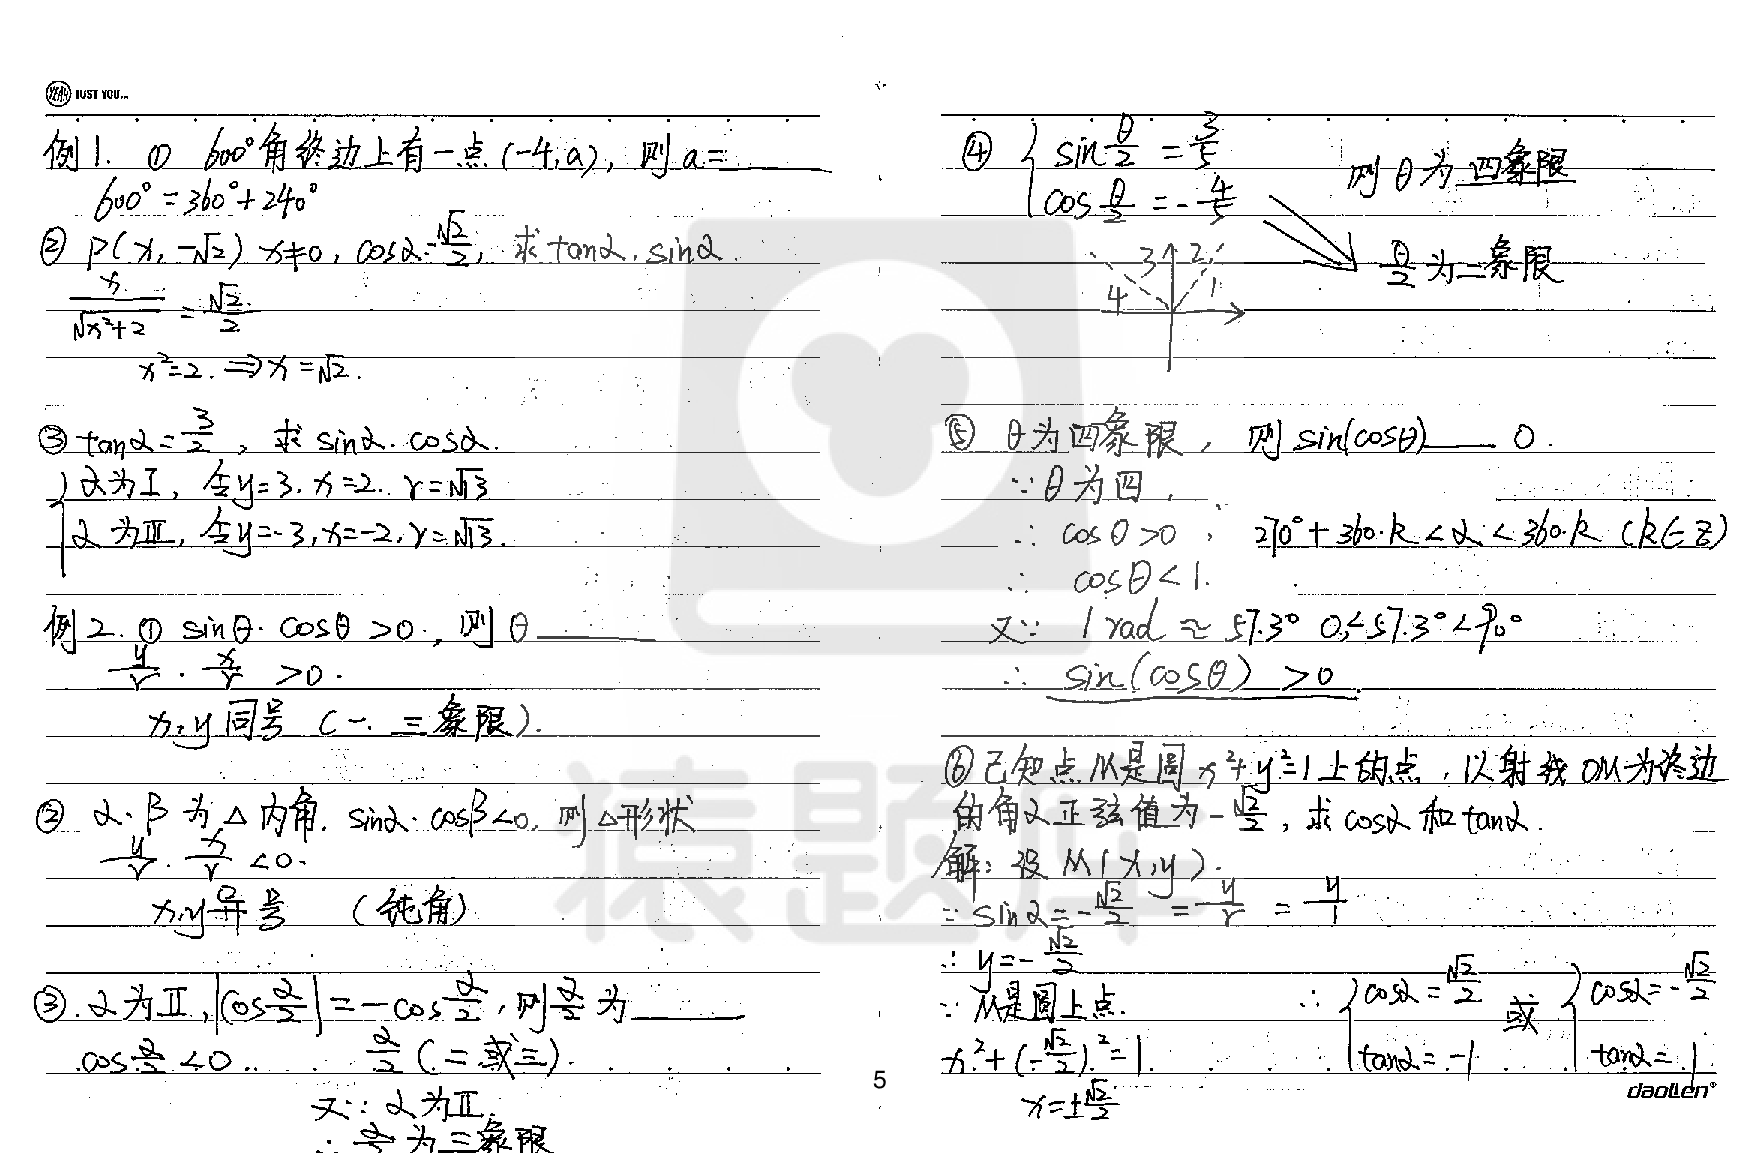 YEAH JUST YOU...
例1. ① 600°角终边上有一点(-4,a), 则a=____
600°=360°+240°
② P(x, -√2) x≠0, cosα=√2/2, 求tanα, sinα.
x/√(x²+2) = √2/2
x²=2. ⇒ x=√2.
③ tanα=3/2, 求sinα. cosα.
{ α为Ⅰ, 令y=3. x=2. r=√13
α为Ⅲ, 令y=-3, x=-2, r=√13.
例2. ① sinθ·cosθ>0, 则θ____
y/r · x/r >0.
x,y同号 (一. 三象限).
② α.β为△内角. sinα·cosβ<0, 则△形状
y/r · x/r <0.
x,y异号 (钝角)
③. α为Ⅱ, |cos α/2| = -cos α/2, 则α/2为____
cos α/2 <0 α/2 (二或三).
又∵ α为Ⅱ.
∴ α/2 为三象限
④ { sin θ/2 = 3/5
cos θ/2 = -4/5
则θ为四象限
θ/2为二象限
3 2
4 1
⑤ θ为四象限, 则sin(cosθ)____0.
∵θ为四,
∴ cosθ>0, 270°+360·k<α<360·k (k∈Z)
∴ cosθ<1.
又∵ 1 rad ≈ 57.3° 0<57.3°<90°
∴ sin(cosθ) >0
⑥已知点M是圆x²+y²=1上的点, 以射线OM为终边
的角α正弦值为-√2/2, 求cosα和tanα.
解: 设M(x,y).
∵ sinα=-√2/2 = y/r = y/1
∴ y=-√2/2
∵ M是圆上点.
x²+(-√2/2)²=1
x=±√2/2
∴ { cosα=√2/2 或 { cosα=-√2/2
tanα=-1 tanα=1
daolen®
5
猿题库